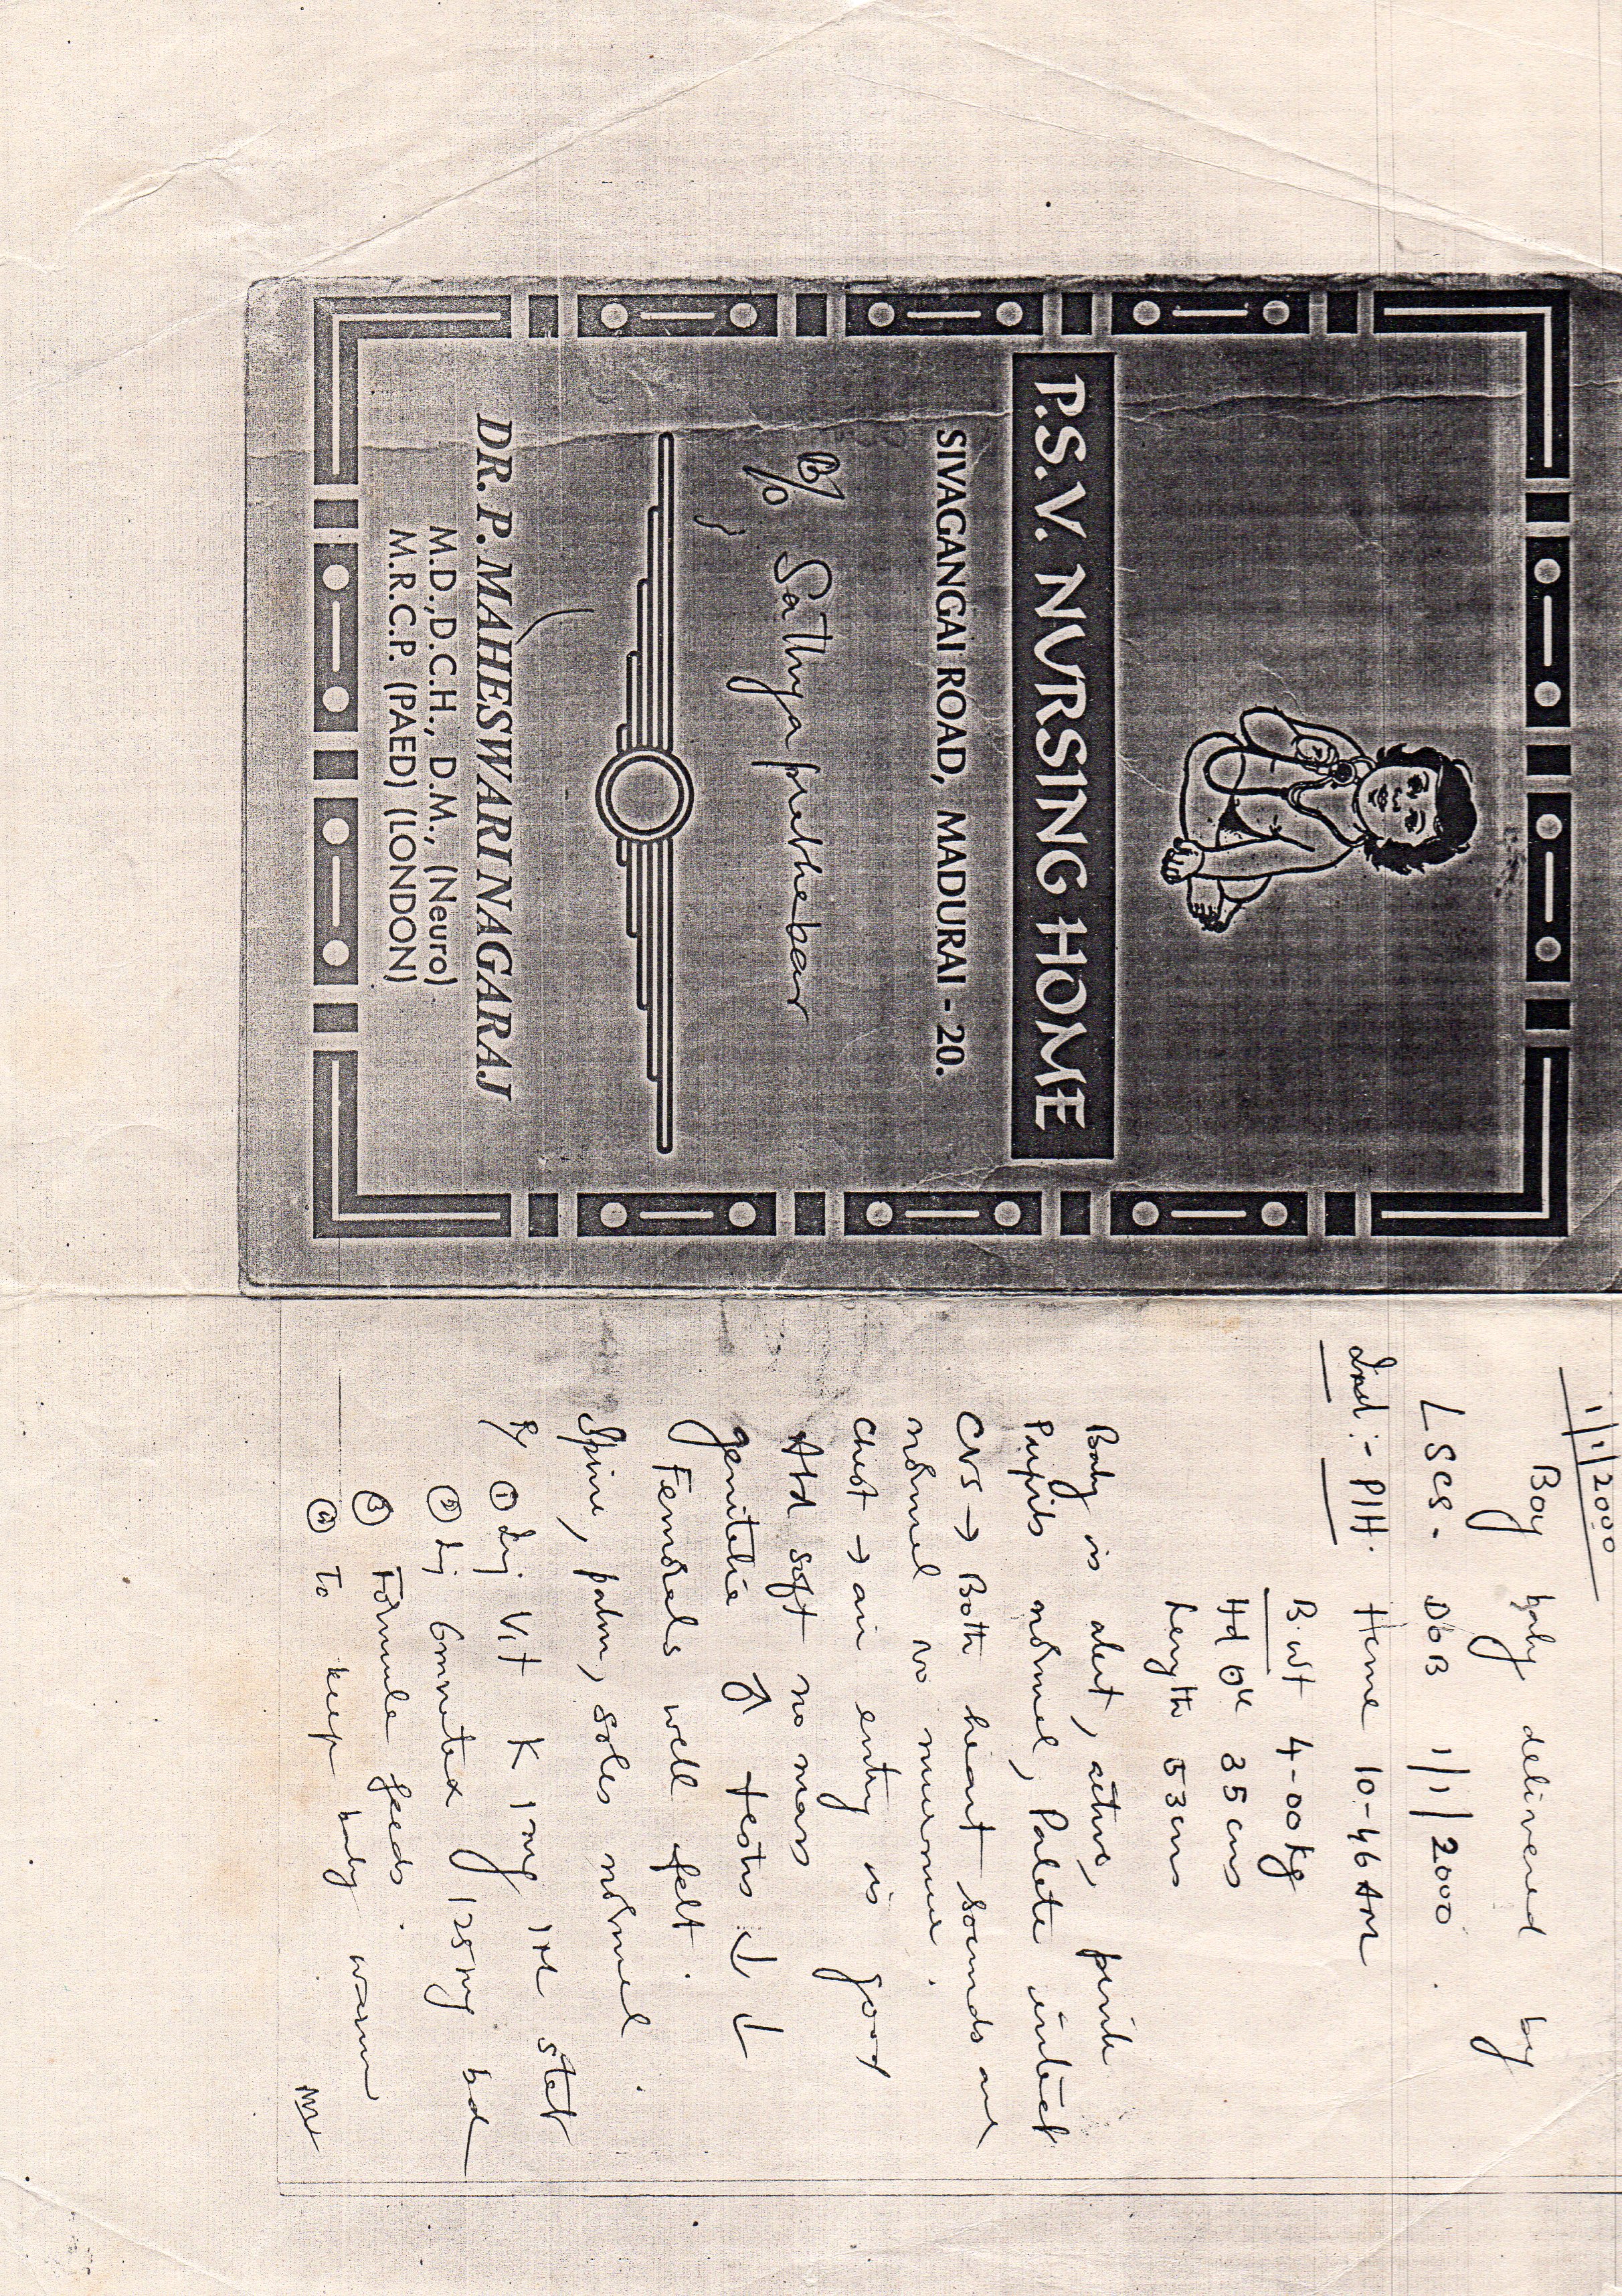 P.S.V. NURSING HOME
SIVAGANGAI ROAD, MADURAI - 20.
B/o Sathyaprebhakar
DR. P. MAHESWARI NAGARAJ
M.D., D.C.H., D.M., (Neuro)
M.R.C.P. (PAED) (LONDON)
1/1/2000
Boy baby delivered by
LSCS. DOB 1/1/2000.
Ind :- PIH. Time 10-46 AM
B. wt 4-00 kg
Hd 35 cms
Length 53 cms
Baby is alert, active, pink
Pupils normal, Palate intact
CVS → Both heart sounds are
normal no murmur.
Chest → air entry is good
Abd soft no mass
genitalia ♂ testis ↓ ↓
Femorals well felt.
Spine, palm, soles normal.
Rx ① Inj Vit K 1mg IM stat
② Inj 125 mg bd
③ Formula feeds.
④ To keep baby warm